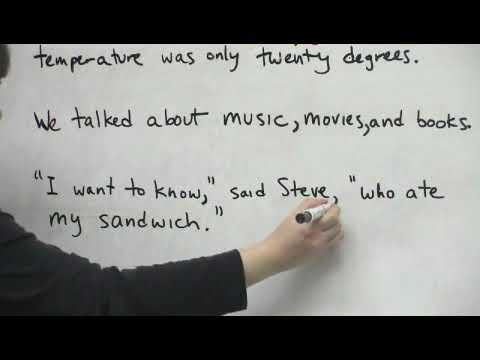 temperature was only twenty degrees.
We talked about music, movies, and books.
"I want to know," said Steve, "who ate
my sandwich."